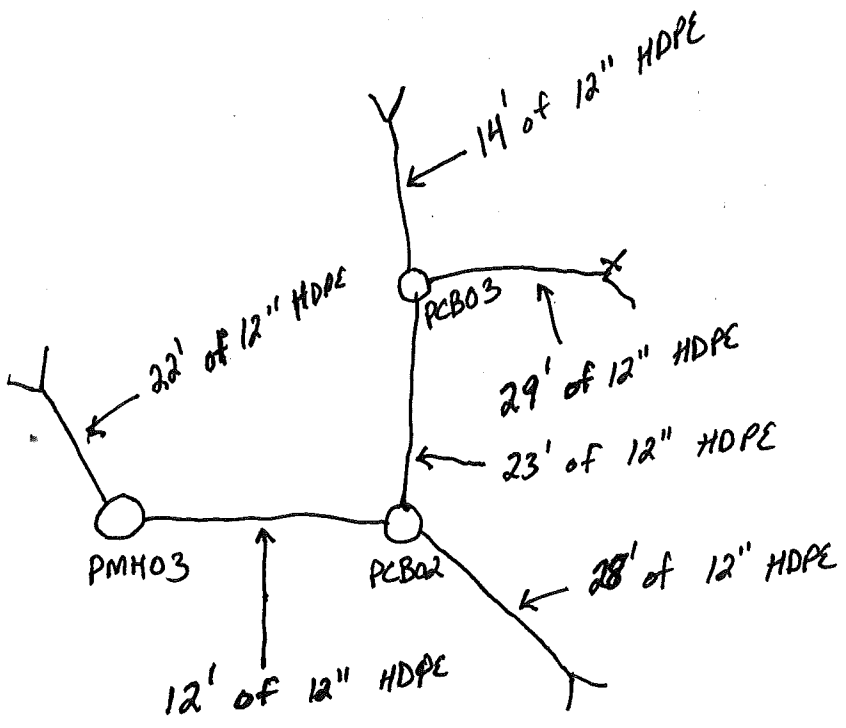 14' of 12" HDPE
PCB03
22' of 12" HDPE
29' of 12" HDPE
23' of 12" HDPE
PMH03
PCB02
28' of 12" HDPE
12' of 12" HDPE